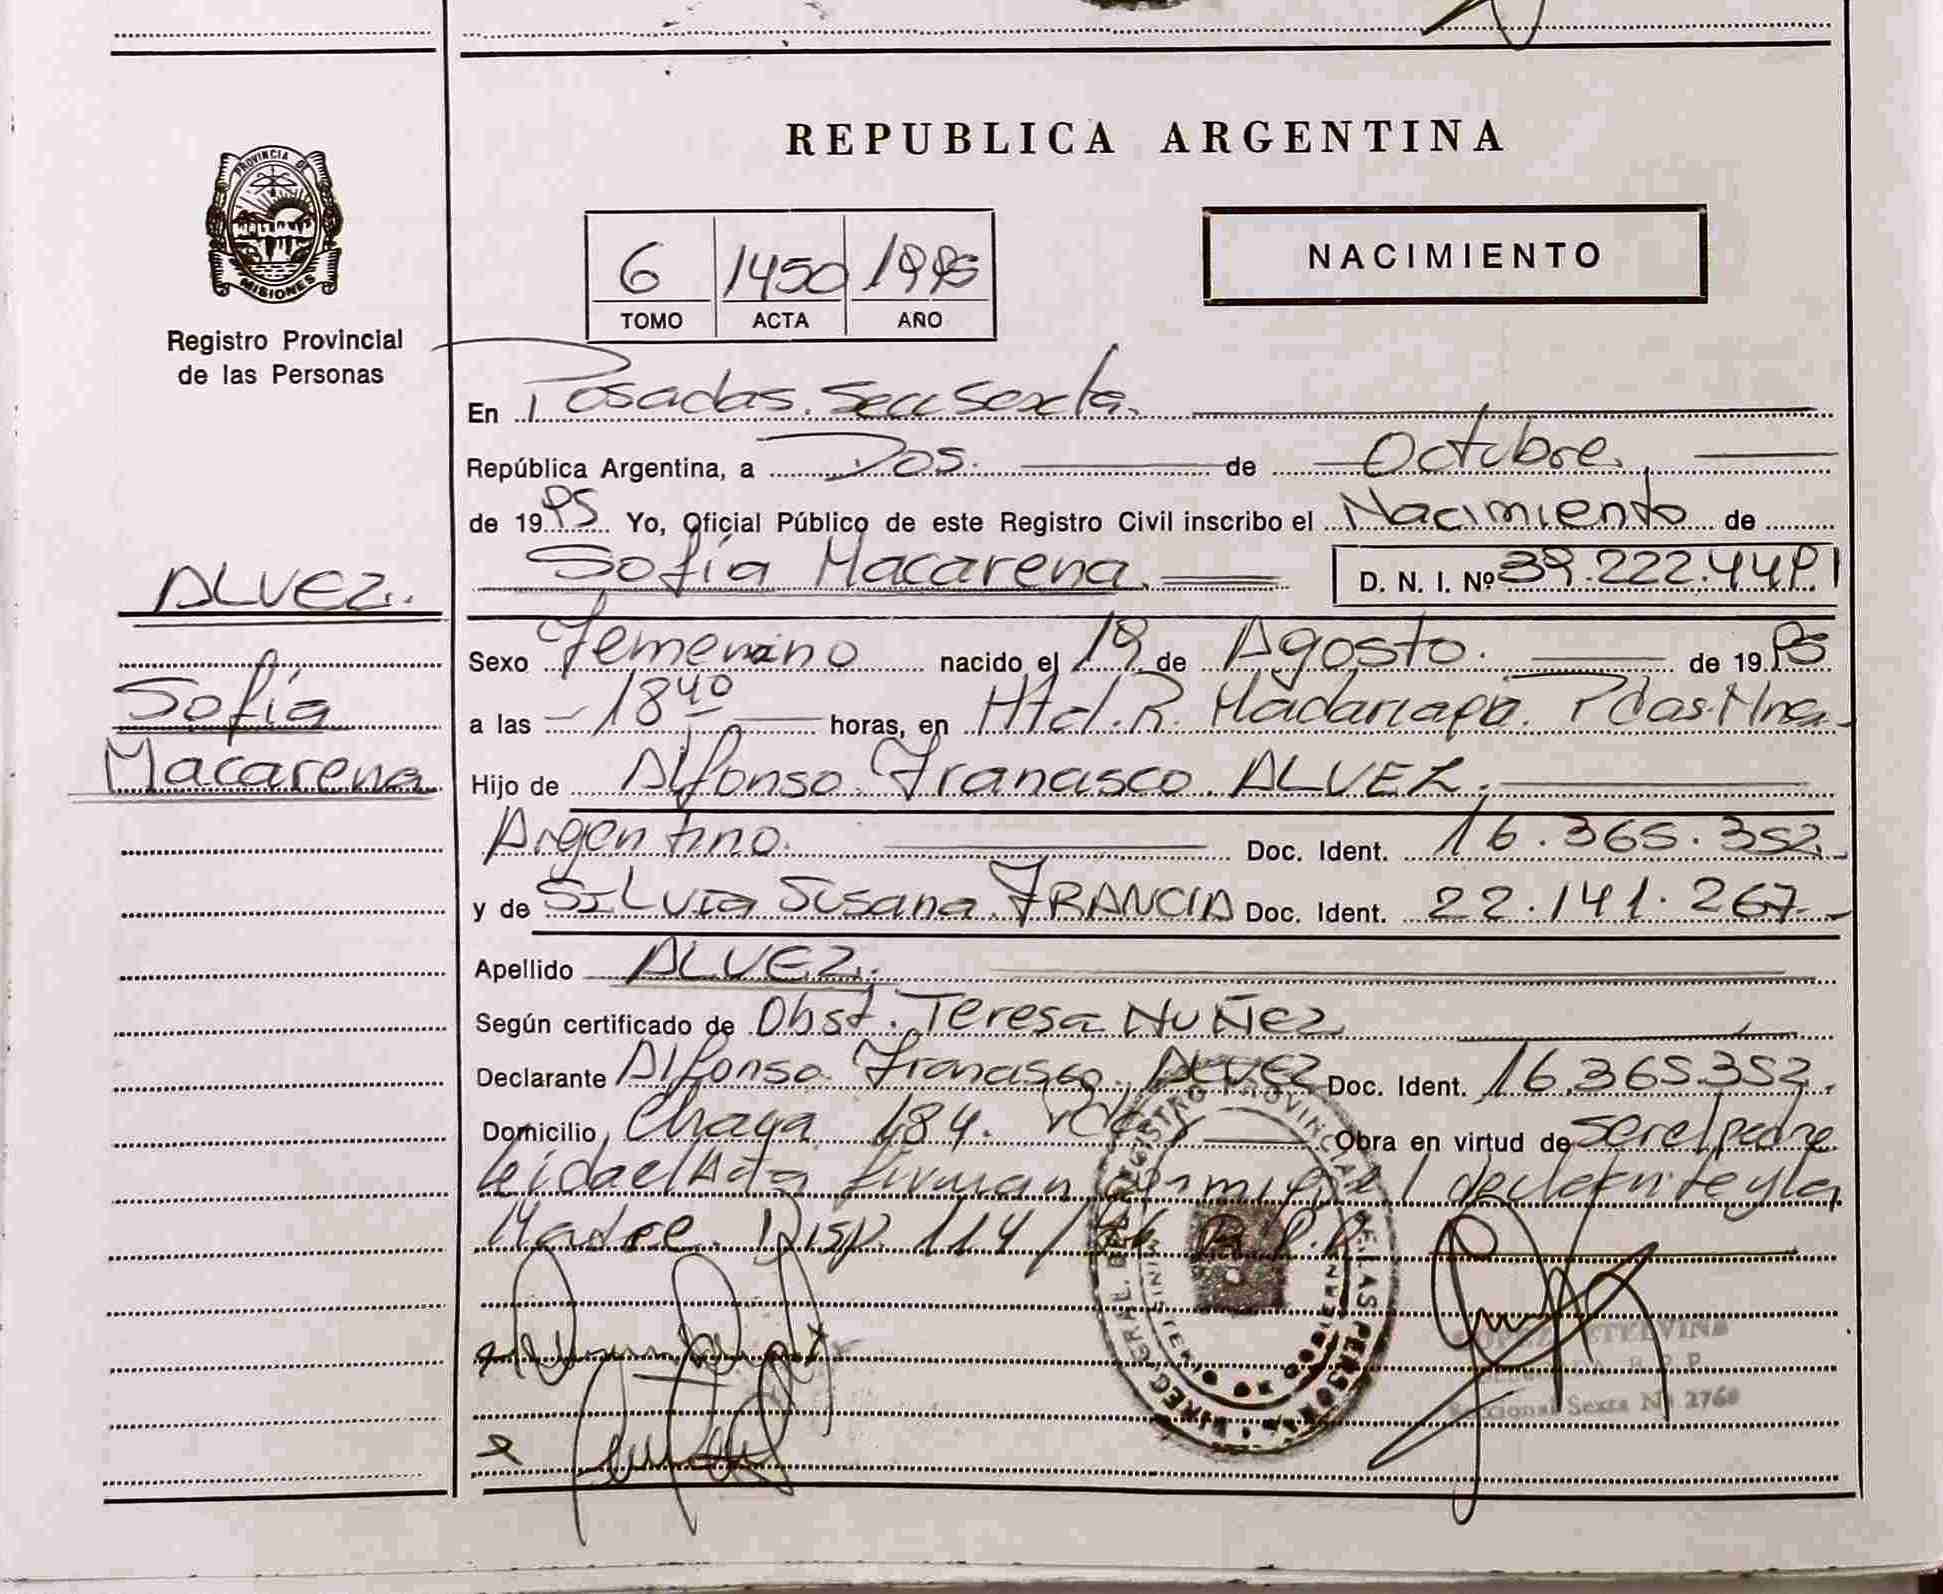 PROVINCIA DE
MISIONES
Registro Provincial
de las Personas
ALVEZ.
Sofía
Macarena
REPUBLICA ARGENTINA
NACIMIENTO
6 1450 1995
TOMO ACTA AÑO
En Posadas. Secc Sexta.
República Argentina, a Dos. de Octubre.
de 1995 Yo, Oficial Público de este Registro Civil inscribo el Nacimiento de
Sofía Macarena. D. N. I. Nº 39.222.449
Sexo Femenino nacido el 19 de Agosto. de 1995
a las 18 40 horas, en Htal. R. Madariaga. Pdas. Mnes.
Hijo de Alfonso Francisco ALVEZ.
Argentino. Doc. Ident. 16.365.352
y de SILVIA Susana FRANCIA Doc. Ident. 22.141.267
Apellido ALVEZ.
Según certificado de Obst. Teresa NUÑEZ
Declarante Alfonso Francisco ALVEZ Doc. Ident. 16.365.352.
Domicilio Chaya 184. Pdas Obra en virtud de ser el padre
Leida el Acta firman conmigo el declarante y la
Madre. Disp. 114/ R.P.P.
REGISTRO PROVINCIAL DE LAS PERSONAS
MINISTERIO DE GOBIERNO
R. P. P.
Seccional Sexta Nº 2760